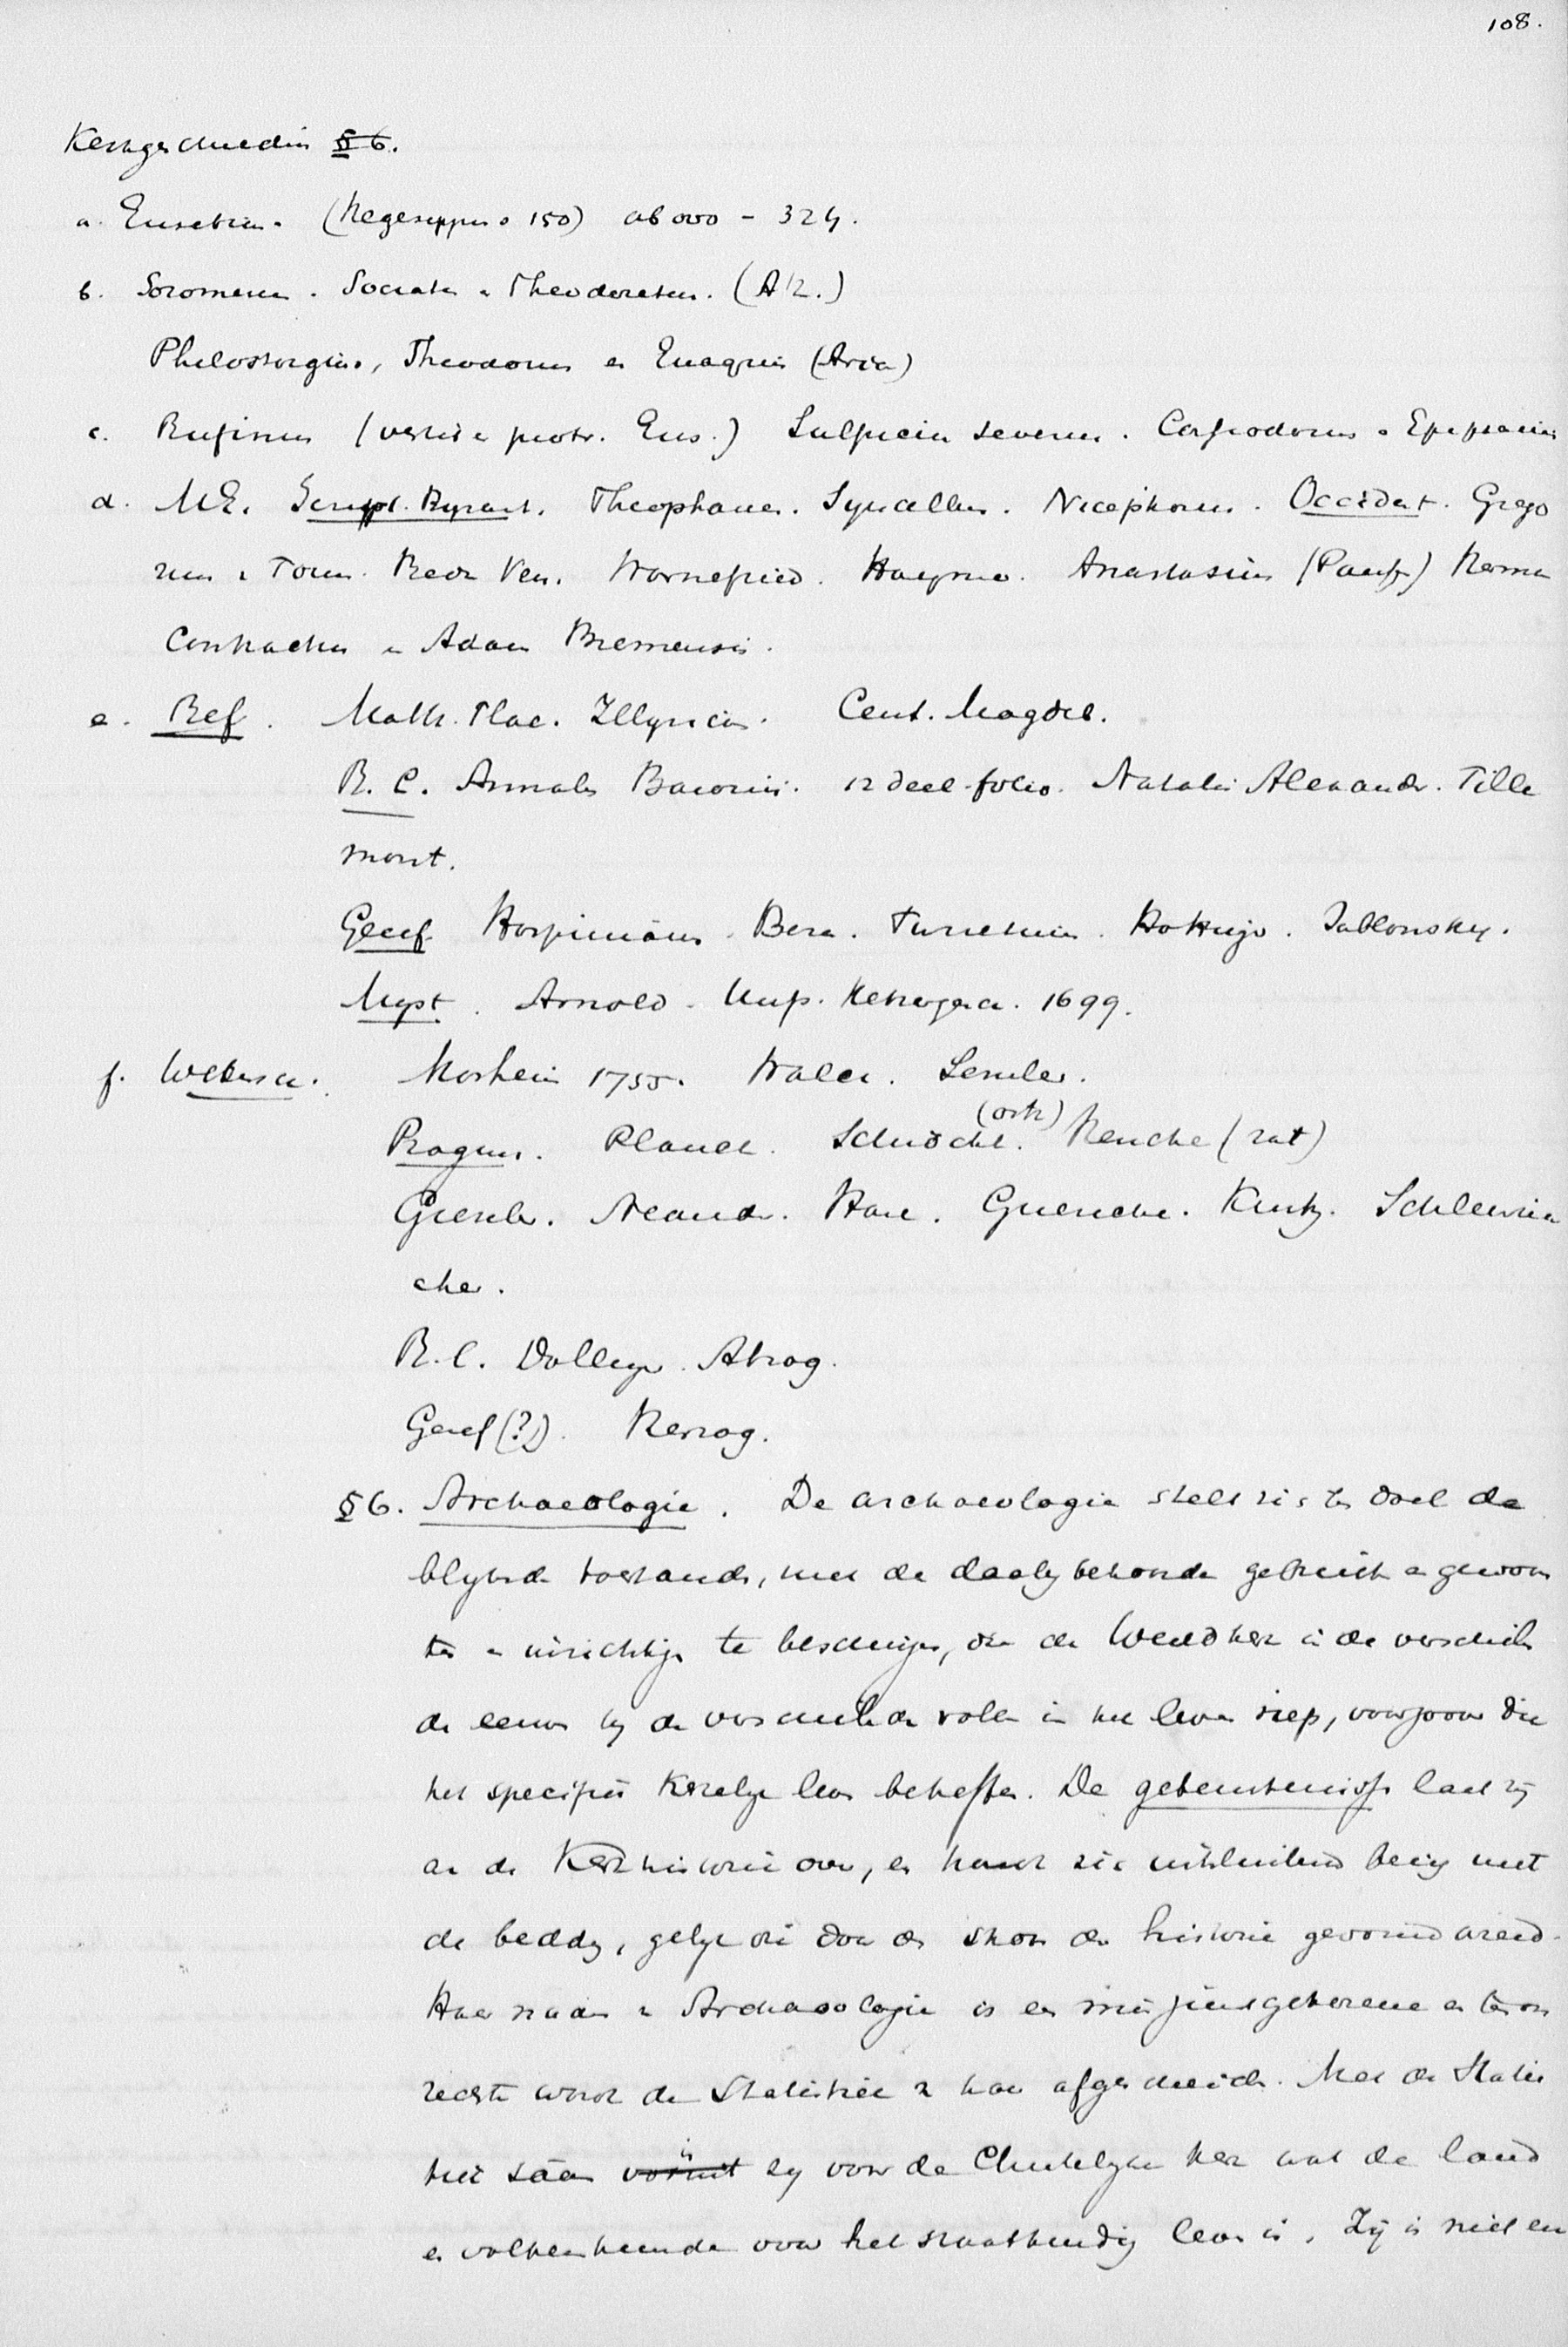 108.
Kerkgeschiedenis § 6.
a. Eusebius. (Hegesippus ° 150) ab ovo - 324.
b. Sozomenus. Socrates en Theodoretus. (A12.)
Philostorgius, Theodorus en Euagrius (Aria)
c. Rufinus (versie protr. Eus.) Sulpicius Severus. Cassiodorus Epiphanius
d. ME. Script. Byzant. Theophanes. Syncellus. Nicephorus. Occident. Grego
rius v Tours. Beda Ven. Warnefried. Haymo. Anastasius Herma
Contractus en Adam Bremensis.
e. Ref. Math. Flac. Illyricus. Cent. Magdeb.
R. C. Annales Baronii. 12 deel folio. Natalis Alexandr. Tille
mont.
Geref Hospinianus. Beza. Turretinus. Hottinger. Jablonsky.
Myst. Arnold. Unp. Ketzergesch. 1699.
f. Wetensch. Mosheim 1755. Walch. Semler.
(orth)
Pragm. Planck. Schröckh. Henke (rat)
Gieseler. Neander. Hase. Guericke. Kurtz. Schleierma
cher.
R.C. Dollinger. Alzog.
Geref (?). Herzog.
§ 6. Archaeologie. De archaeologie stelt zich ten doel de
blijvende toestanden, met de daarbij behoorende gebruiken en gewoon
ten en inrichtingen te beschrijven, die de Wereldkerk in de verschillen
de eeuwen bij de verschillende volken in het leven riep, voorzoover die
het specifiek Kerkelijk leven betreffen. De gebeurtenissen laat zij
aan de Kerkhistorie over, en houdt zich uitsluitend bezig met
de bedding, gelijk die door de stroom der historie gevormd werd.
Haar naam Archaeologie is en
rechte wordt de Statistiek van haar afgescheiden. Met de Statis
tiek saam is zij voor de Christelijke kerk wat de land
en volkenkunde voor het staatkundig leven is. Zij is niet een